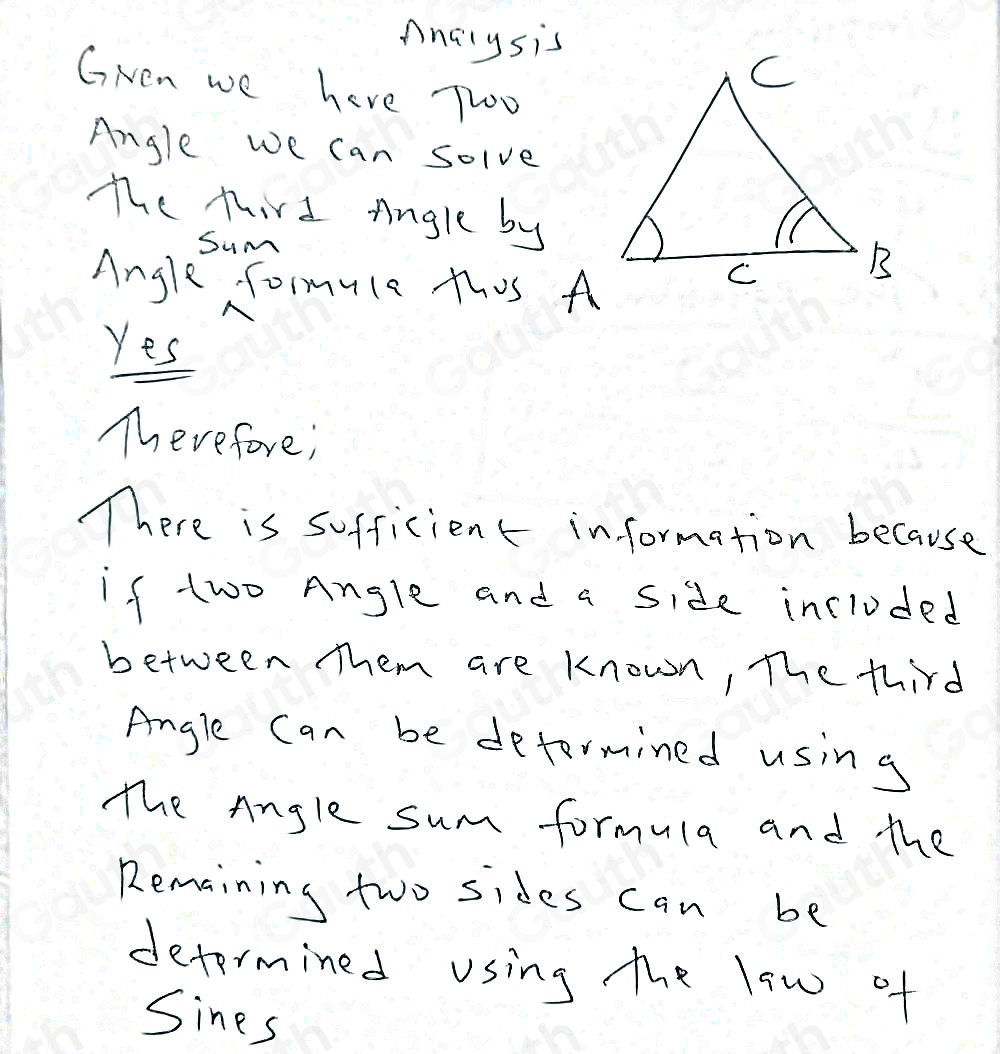 Analysis
Given we have Two
Angle we can solve
the third Angle by
sum
Angle ^ formula thus
Yes
C
A
c
B
Therefore;
There is sufficient information because
if two Angle and a side included
between them are known, The third
Angle can be determined using
the Angle sum formula and the
Remaining two sides can be
determined using the law of
Sines